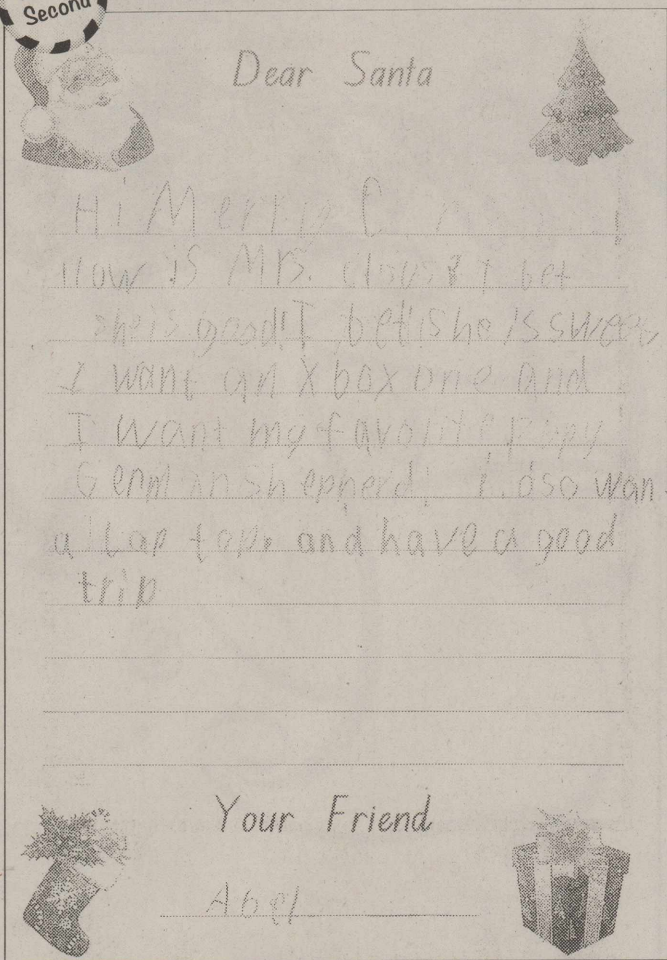 Second
Dear Santa
Hi Merry C
How is Mrs. claus? I bet
she is good! I bet she is sweet
I want an Xbox one and
I want my favorite
German Shepherd! I also wan
a Lap top. and have a good
trip
Your Friend
Abel